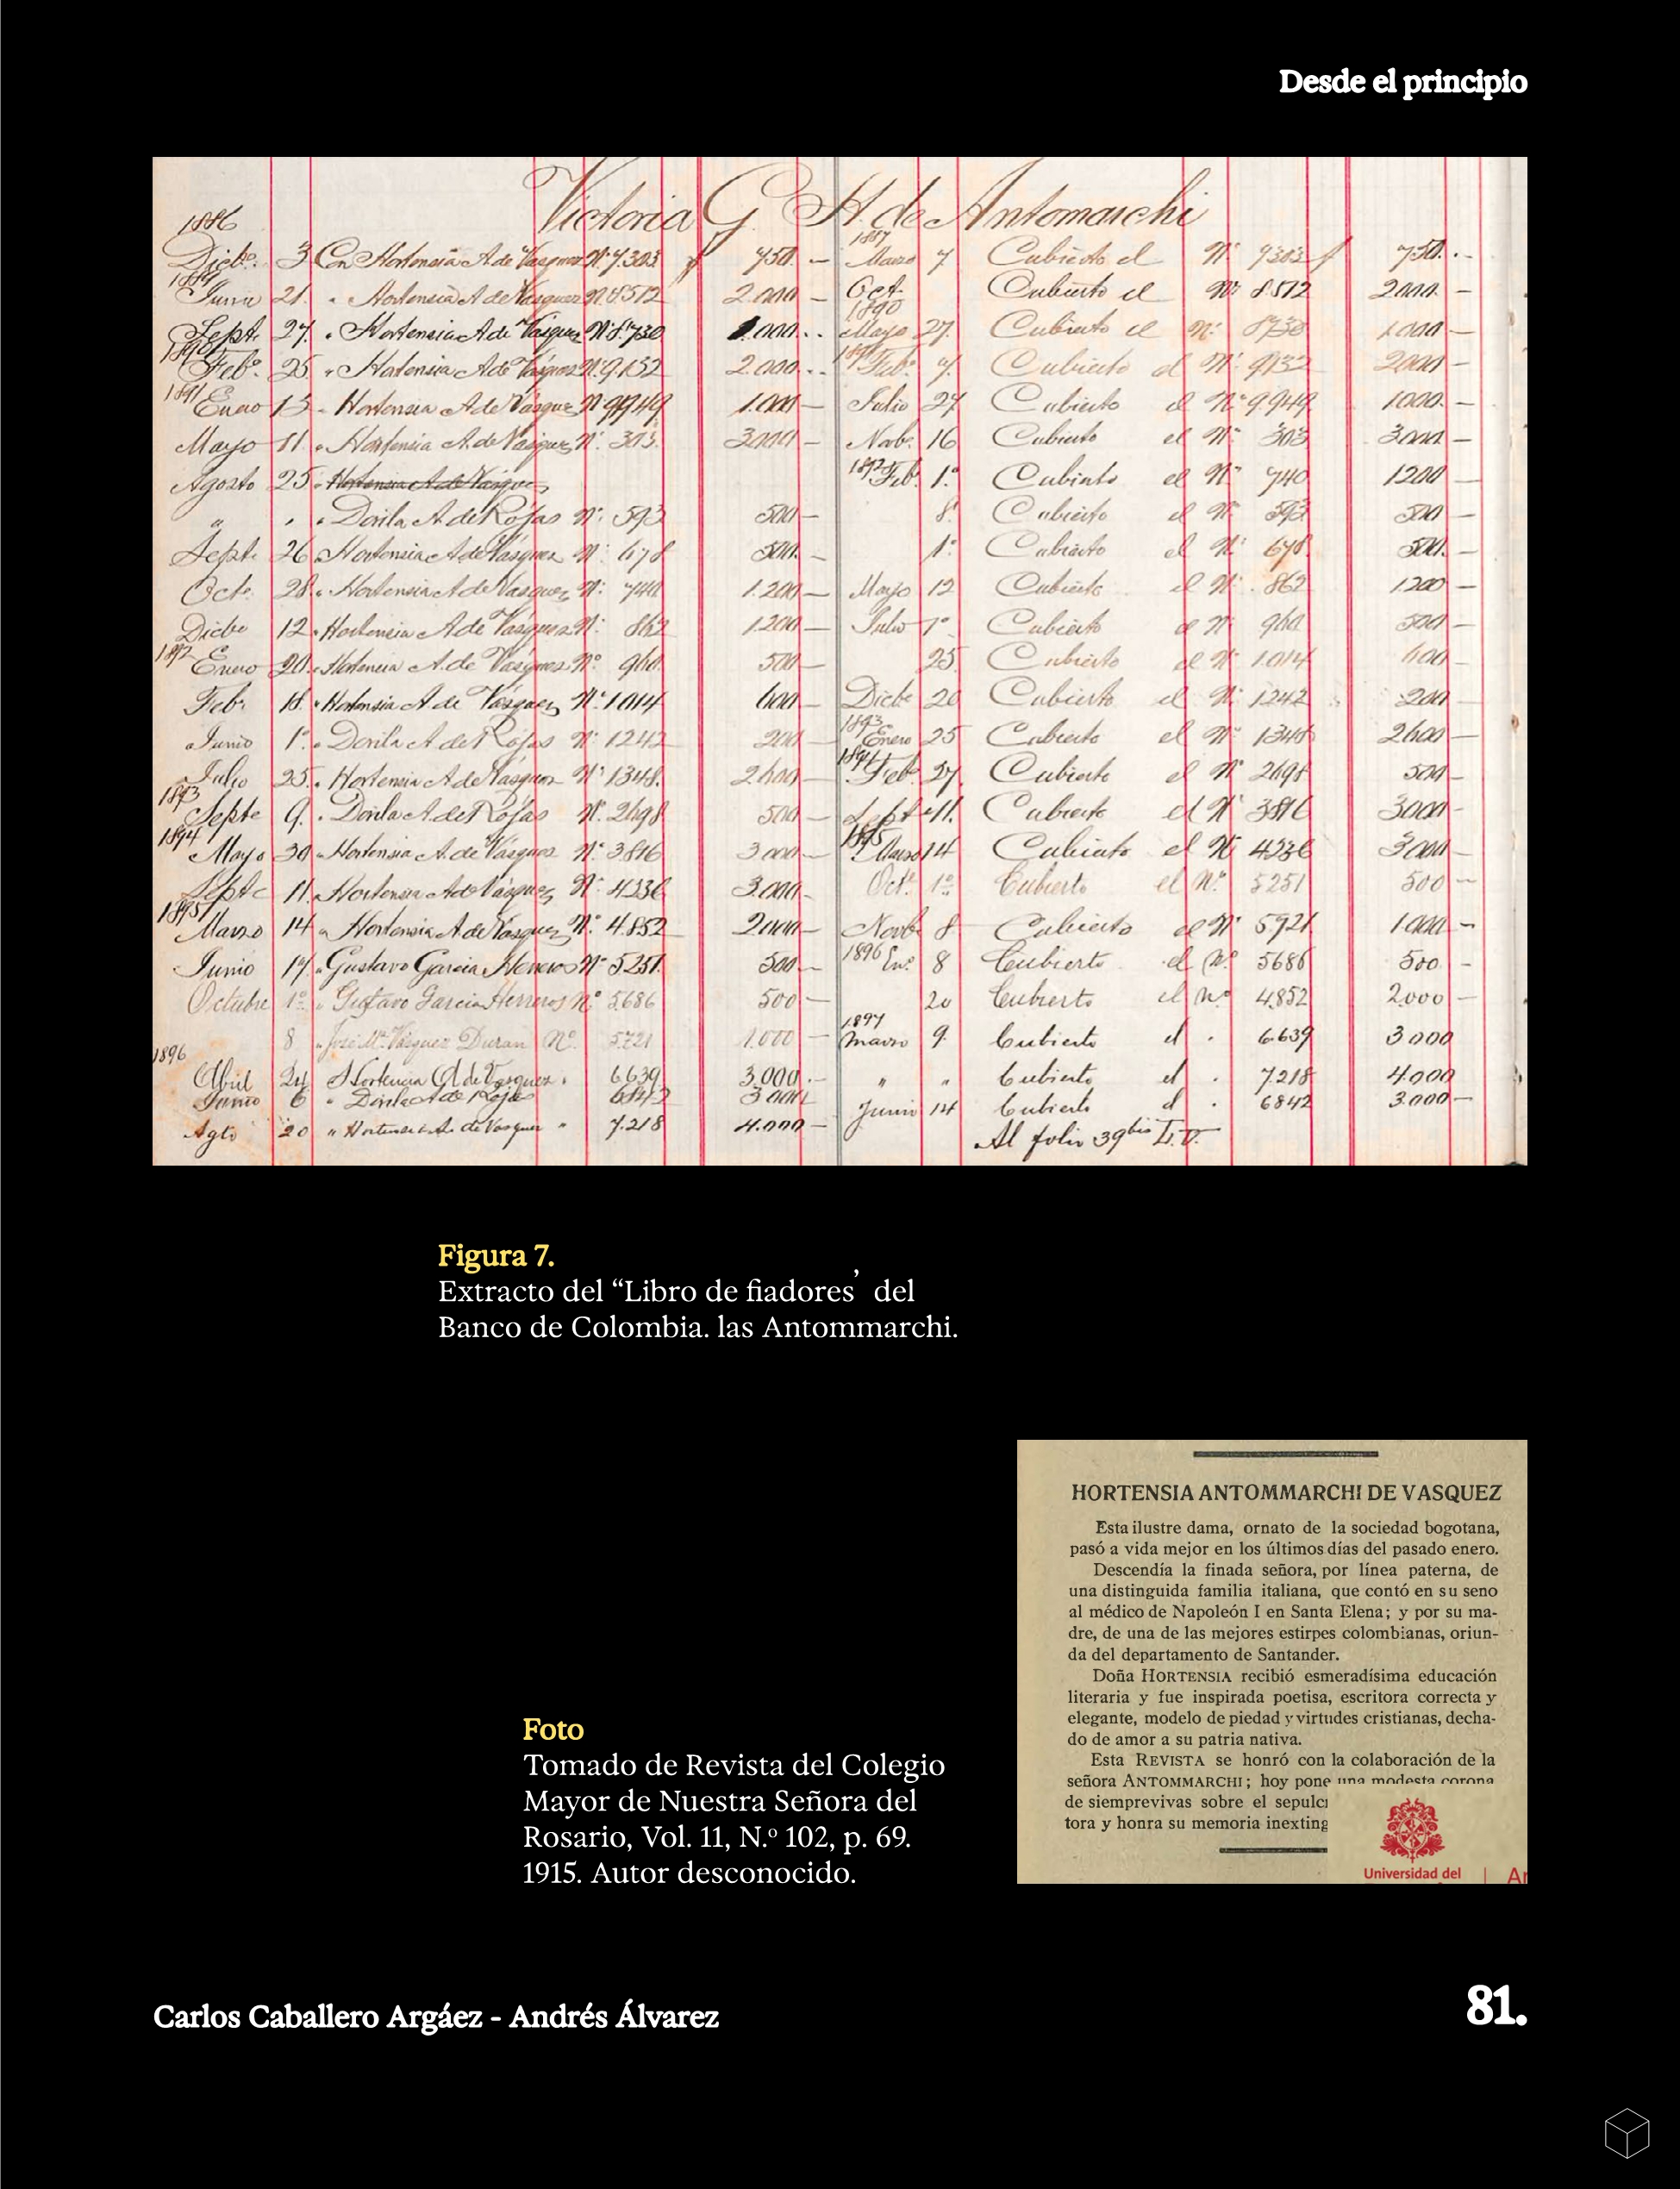 Desde el principio
Victoria G. H. de Antomarchi
1886
Dicbe. 3 Con Hortensia A. de Vasquez Nº 7.303 $ 750. — 1887 Marzo 7 Cubierto el Nº 7303 $ 750. . -
1889
Junio 21. " Hortensia A de Vásquez Nº 8572 2.000 — Oct. Cubierto el Nº 8572 2000. —
Sept. 27. " Hortensia A de Vásquez Nº 8730 1.000. . . 1890 Mayo 27. Cubierto el Nº 8730 1000 —
1890
Feb. 25 " Hortensia A de Vásquez Nº 9.132 2.000. . . 1891 Feb. 7. Cubierto el Nº 9132 2000 —
1891
Enero 13 " Hortensia A de Vásquez Nº 9949 1.000 — Julio 27 Cubierto el Nº 9.949 1000. —
Mayo 11. " Hortensia A. de Vásquez Nº 303. 3000 — Novb. 16 Cubierto el Nº 303 3000 —
Agosto 25 " Hortensia A de Vásquez 1892 Feb. 1º Cubierto el Nº 740 1200 —
" " " Dorila A. de Rójas Nº 593 500 — 8. Cubierto el Nº 593 500 —
Septe. 26 " Hortensia A de Vásquez Nº 678 500. — 1º Cubierto el Nº 678 500. —
Octe. 28. " Hortensia A de Vásquez Nº 740 1.200 — Mayo 12 Cubierto el Nº 862 1200 —
Dicbe 12 " Hortensia A de Vásquez Nº 862 1.200 — Julio 1º Cubierto el Nº 960 500 —
1892
Enero 20. " Hortensia A. de Vásquez Nº 960. 500 — 25. Cubierto el Nº 1014 600 —
Febr. 18. " Hortensia A. de Vásquez Nº 1014 600 — Dicbe 20 Cubierto el Nº 1242 200 —
Junio 1º " Dorila A. de Rójas Nº 1242 200 — 1893 Enero 25 Cubierto el Nº 1348 2600 —
Julio 25. " Hortensia A de Vásquez Nº 1348. 2.600 — 1894 Feb. 27. Cubierto el Nº 2698 500 —
1893
Septe 9. " Dorila A. de Rójas Nº 2698 500 — Sept. 11. Cubierto el Nº 3816 3000 -
1894
Mayo 30 " Hortensia A. de Vásquez Nº 3816 3.000 — 1895 Marzo 14 Cubierto el Nº 4236 3000 —
Septe 11. " Hortensia A de Vásquez Nº 4236 3.000. Octe. 1º Cubierto el Nº 5251 500 —
1895
Marzo 14 " Hortensia A. de Vásquez Nº 4.852 2000 — Novb. 8 Cubierto el Nº 5721 1.000 —
Junio 17. " Gustavo Garcia Herreros Nº 5251. 500 — 1896 Enº 8 Cubierto el Nº 5686 500 -
Octubre 1º " Gustavo Garcia Herreros Nº 5686 500 — 20 Cubierto el Nº 4.852 2.000 —
8 " José Mª Vásquez Duran Nº 5721 1.000 — 1897 Marzo 9. Cubierto el . 6639 3000
1896
Abril 24 " Hortencia A de Vasquez " 6639 3.000. — " " Cubierto el . 7.218 4.000
Junio 6 " Dorila A de Rojas 6842 3000 Junio 14 Cubierto el . 6842 3.000 —
Agto 20 " Hortensia A. de Vasquez " 7.218 4.000 — Al folio 39 bis L. V.
Figura 7.
Extracto del “Libro de fiadores’ del
Banco de Colombia. las Antommarchi.
HORTENSIA ANTOMMARCHI DE VASQUEZ
Esta ilustre dama, ornato de la sociedad bogotana,
pasó a vida mejor en los últimos días del pasado enero.
Descendía la finada señora, por línea paterna, de
una distinguida familia italiana, que contó en su seno
al médico de Napoleón I en Santa Elena; y por su ma-
dre, de una de las mejores estirpes colombianas, oriun-
da del departamento de Santander.
Doña HORTENSIA recibió esmeradísima educación
literaria y fue inspirada poetisa, escritora correcta y
elegante, modelo de piedad y virtudes cristianas, decha-
do de amor a su patria nativa.
Esta REVISTA se honró con la colaboración de la
señora ANTOMMARCHI; hoy pone una modesta corona
de siemprevivas sobre el sepulc
tora y honra su memoria inexting
Universidad del | Ar
Foto
Tomado de Revista del Colegio
Mayor de Nuestra Señora del
Rosario, Vol. 11, N.º 102, p. 69.
1915. Autor desconocido.
Carlos Caballero Argáez - Andrés Álvarez
81.